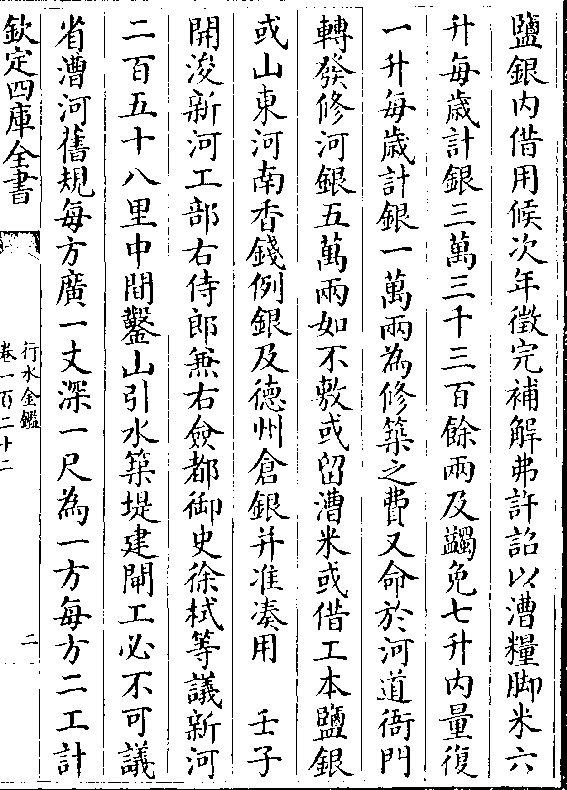 鹽銀内借用候次年徵完補解弗許詔以漕糧脚米六
升每歲計銀三萬三千三百餘兩及蠲免七升内量復
一升每歲計銀一萬兩為修築之費又命於河道衙門
轉發修河銀五萬兩如不敷或留漕米或借工本鹽銀
或山東河南香錢例銀及德州倉銀并准凑用　壬子
開浚新河工部右侍郎兼右僉都御史徐栻等議新河
二百五十八里中間鑿山引水築堤建閘工必不可議
省漕河舊規每方廣一丈深一尺為一方每方二工計
欽定四庫全書
行水金鑑
卷一百二十二
二